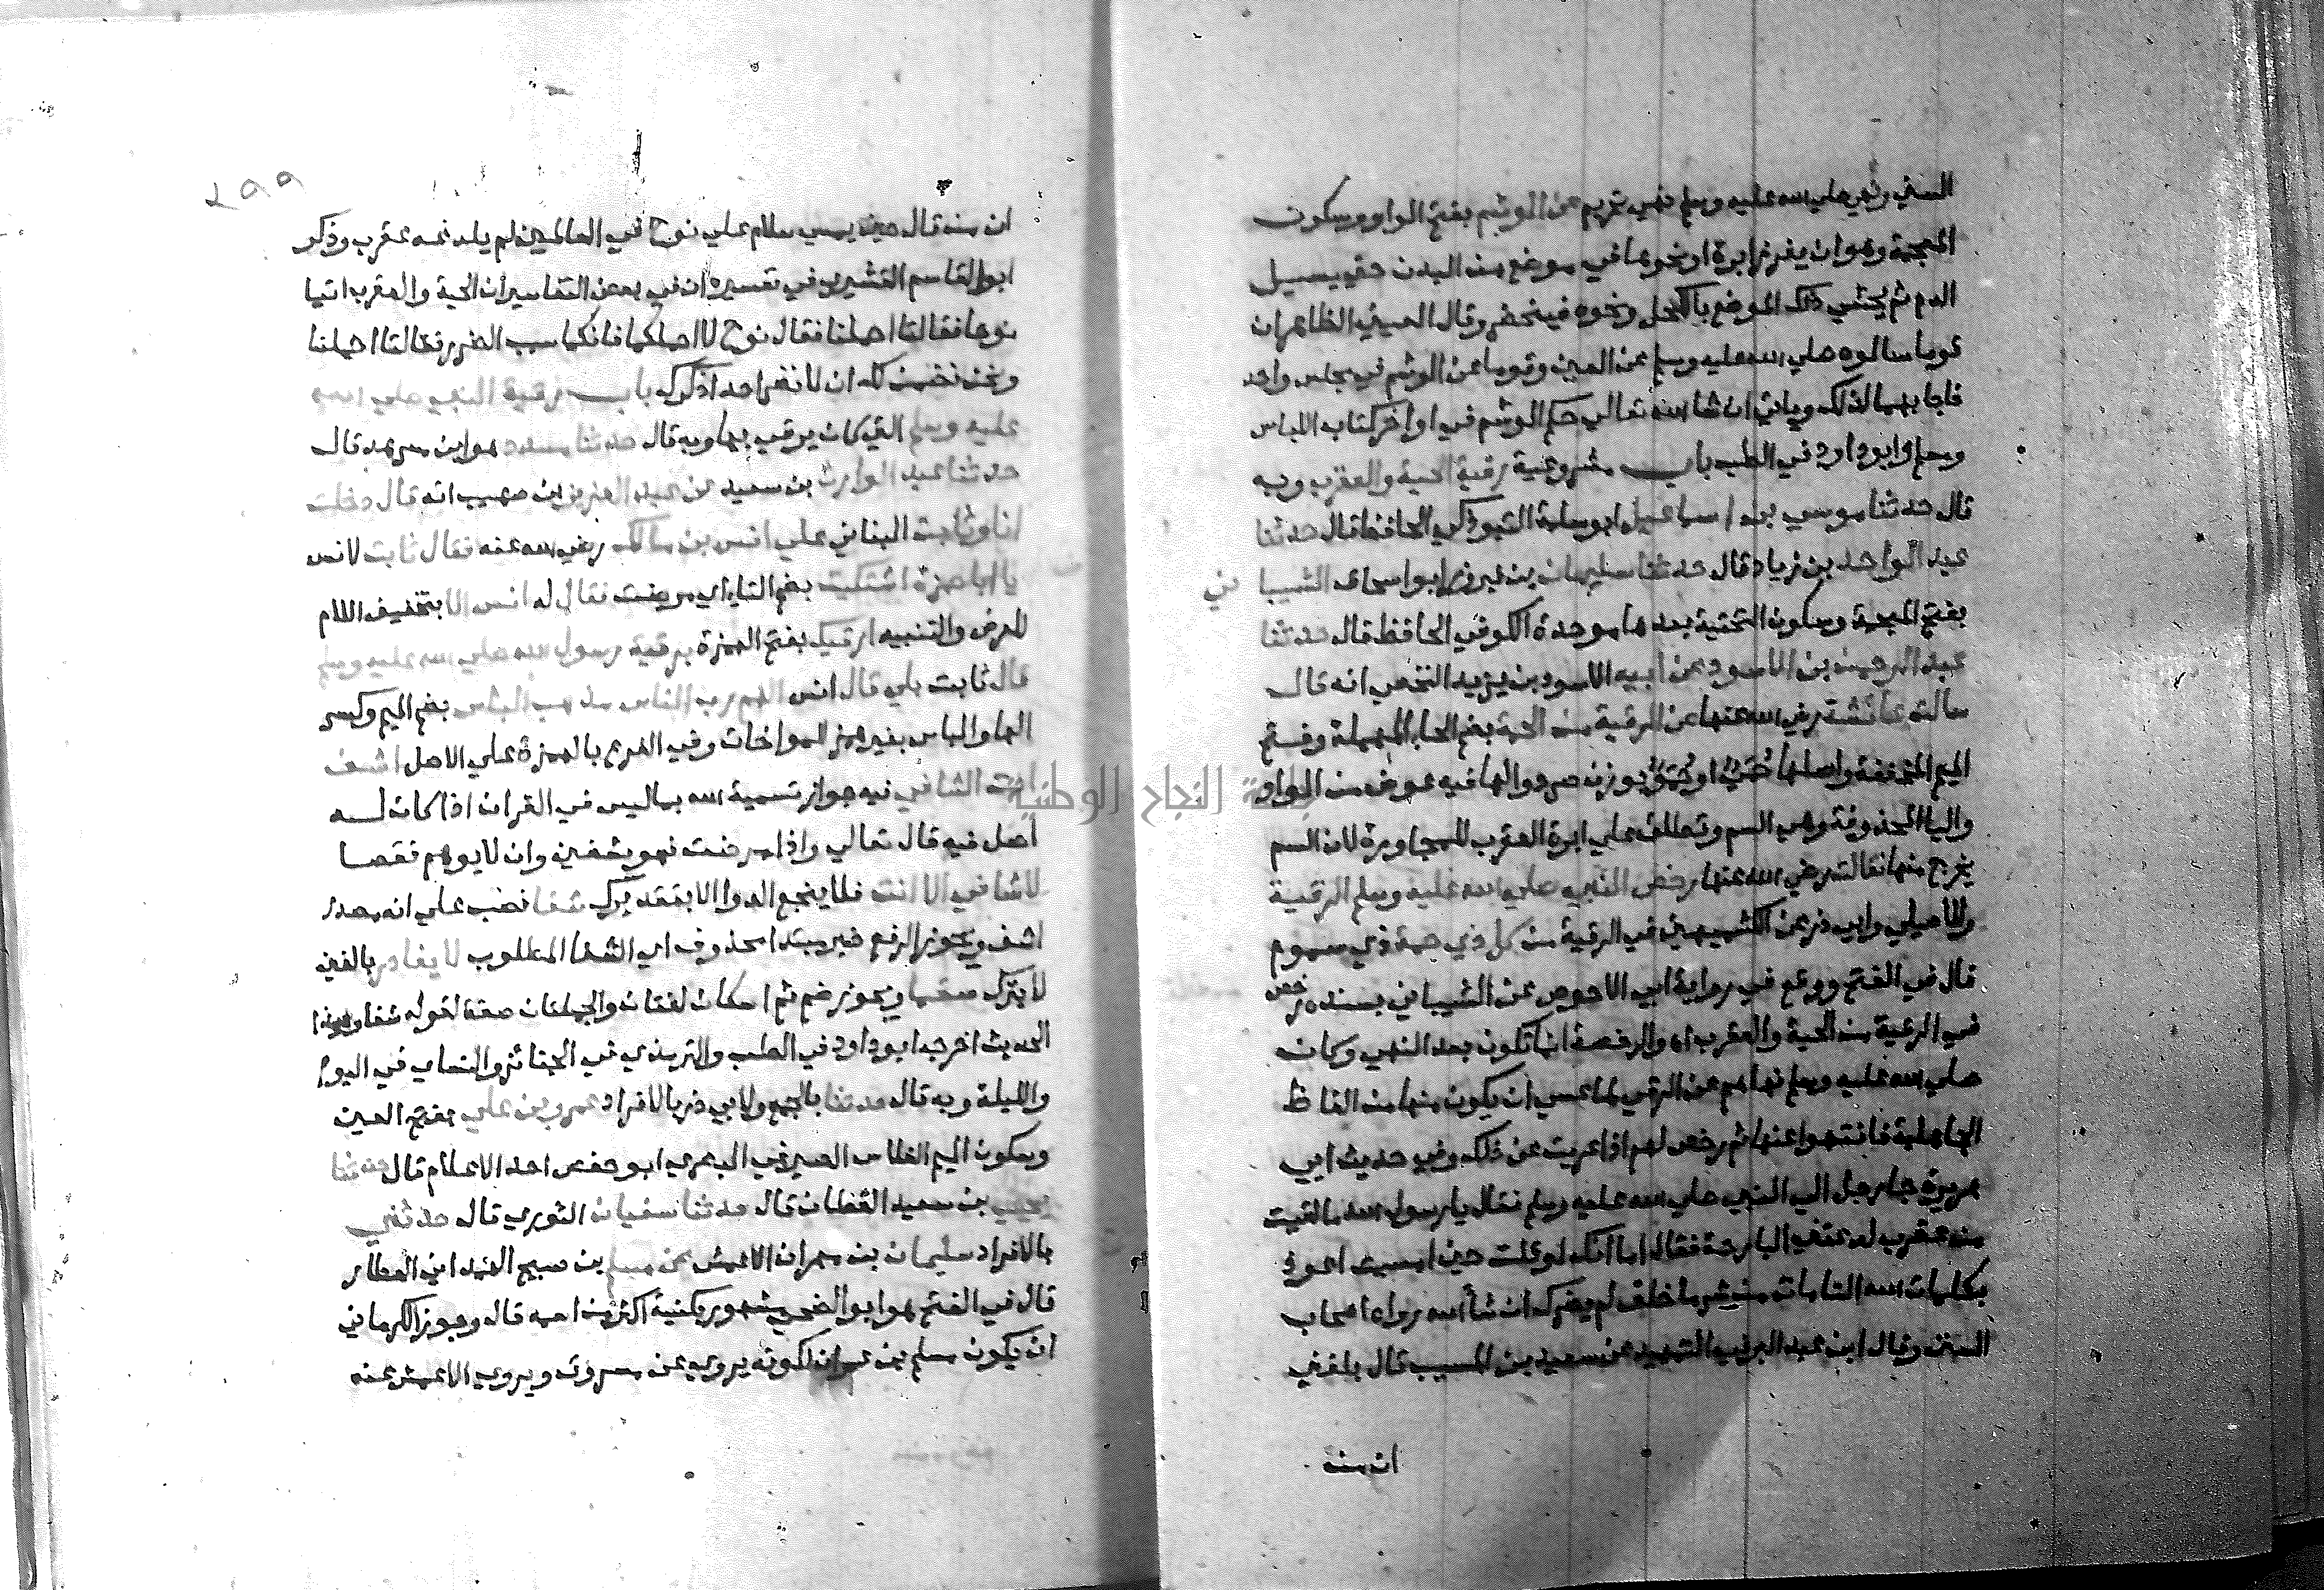 السنن ونهى صلي الله عليه وسلم نهي تحريم عن الوشم بفتح الواو وسكون
المعجمة وهو ان يغرز ابرة او نحوها في موضع من البدن حتي يسيل
الدم ثم يحشي ذلك الموضع بالكحل ونحوه فيخضر وقال العيني الظاهر ان
قوما سالوه صلي الله عليه وسلم عن العين وقوما عن الوشم في مجلس واحد
فاجابهما لذلك وياتي ان شا الله تعالي حكم الوشم في اواخر كتاب اللباس
ومسلم وابو داود في الطب باب مشروعية رقية الحية والعقرب وبه
قال حدثنا موسي بن اسماعيل ابو سلمة التبوذكي الحافظ قال حدثنا
عبد الواحد بن زياد قال حدثنا سليمان بن فيروز ابو اسحاق الشيباني
بفتح المعجمة وسكون التحتية بعدها موحدة الكوفي الحافظ قال حدثنا
عبد الرحمن بن الاسود عن ابيه الاسود بن يزيد النخعي انه قال
سالت عائشة رضي الله عنها عن الرقية من الحمة بضم الحاء المهملة وفتح
الميم المخففة واصلها حمي او حمو بوزن صرد والها فيه عوض من الواو
واليا المحذوفة وهي السم وتطلق علي ابرة العقرب للمجاورة لان السم
يخرج منها فقالت رضي الله عنها رخص النبي صلي الله عليه وسلم الرقية
وللاصيلي وابي ذر عن الكشميهني في الرقية من كل ذي حمة ذي سموم
قال في الفتح ووقع في رواية ابي الاحوص عن الشيباني بسنده رخص
في الرقية من الحية والعقرب اه والرخصة انما تكون بعد النهي وكان
صلي الله عليه وسلم نهاهم عن الرقي لما عسي ان يكون منها من الفاظ
الجاهلية فانتهوا عنها ثم رخص لهم اذا عريت عن ذلك وفي حديث ابي
هريرة جا رجل الي النبي صلي الله عليه وسلم فقال يا رسول الله ما لقيت
من عقرب لدغتني البارحة فقال اما انك لو قلت حين امسيت اعوذ
بكلمات الله التامات من شر ما خلق لم يضرك ان شا الله رواه اصحاب
السنن وقال ابن عبد البر في التمهيد عن سعيد بن المسيب قال بلغني
ان منه
٢٩٩
ان منه قال حين يمسي سلام علي نوح في العالمين لم يلدغه عقرب وذكر
ابو القاسم القشيري في تفسيره ان في بعض التفاسير ان الحية والعقرب اتيا
نوحا فقالتا احملنا فقال نوح لا احملكما فانكما سبب الضرر فقالتا احملنا
ونحن نضمن لك ان لا نضر احدا ذكرك باب رقية النبي صلي الله
عليه وسلم التي كان يرقي بها وبه قال حدثنا مسدد هو ابن مسرهد قال
حدثنا عبد الوارث بن سعيد عن عبد العزيز بن صهيب انه قال دخلت
انا وثابت البناني علي انس بن مالك رضي الله عنه فقال ثابت لانس
يا ابا حمزة اشتكيت بضم التا اي مرضت فقال له انس الا بتخفيف اللام
للعرض والتنبيه ارقيك بفتح الهمزة برقية رسول الله صلي الله عليه وسلم
قال ثابت بلي قال انس اللهم رب الناس مذهب الباس بضم الميم وكسر
الها والباس بغير همز للمواخات وفي الفرع بالهمزة علي الاصل اشف
انت الشافي فيه جواز تسمية الله بما ليس في القران اذا كان له
اصل فيه قال تعالي واذا مرضت فهو يشفين وان لا يوهم نقصا
لا شافي الا انت فلا ينجع الدوا الا بتقديرك شفا نصب علي انه مصدر
اشف ويجوز الرفع خبر مبتدا محذوف اي الشفا المطلوب لا يغادر بالغين
لا يترك سقما ويجوز ضم ثم اسكان لغتان والجملتان صفة لقوله شفا وهذا
الحديث اخرجه ابو داود في الطب والترمذي في الجنائز والنساي في اليوم
والليلة وبه قال حدثنا بالجمع ولابي ذر بالافراد عمرو بن علي بفتح العين
وسكون الميم الفلاس الصيرفي البصري ابو حفص احد الاعلام قال حدثنا
يحيي بن سعيد القطان قال حدثنا سفيان الثوري قال حدثني
بالافراد سليمان بن مهران الاعمش عن مسلم بن صبيح الهمداني العطار
قال في الفتح هو ابو الضحي مشهور بكنيته اكثر من اسمه قال وجوز الكرماني
ان يكون مسلم بن عمران لكونه يروي عن مسروق ويروي الاعمش عنه
جامعة النجاح الوطنية